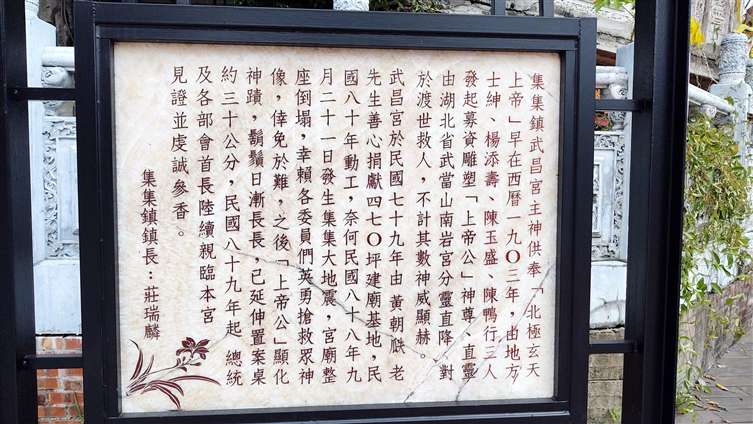 集集鎮武昌宮主神供奉「北極玄天
上帝」早在西曆一九〇三年，由地方
士紳、楊添壽、陳玉盛、陳鴨行三人
發起募資雕塑「上帝公」神尊、直靈
由湖北省武當山南岩宮分靈直降，對
於渡世救人，不計其數神威顯赫。
武昌宮於民國七十九年由黃朝猷老
先生善心捐獻四七〇坪建廟基地，民
國八十年動工，奈何民國八十八年九
月二十一日發生集集大地震，宮廟整
座倒塌，幸賴各委員們英勇搶救眾神
像，倖免於難，之後「上帝公」顯化
神蹟，鬍鬚日漸長長，已延伸置案桌
約三十公分，民國八十九年起 總統
及各部會首長陸續親臨本宮
見證並虔誠參香。
集集鎮鎮長：莊瑞麟